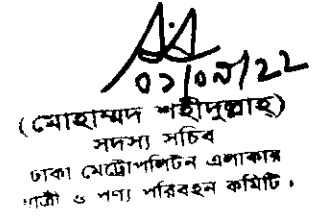 ০১/০৯/22
(মোহাম্মদ শহীদুল্লাহ)
সদস্য সচিব
ঢাকা মেট্রোপলিটন এলাকার
যাত্রী ও পণ্য পরিবহন কমিটি।